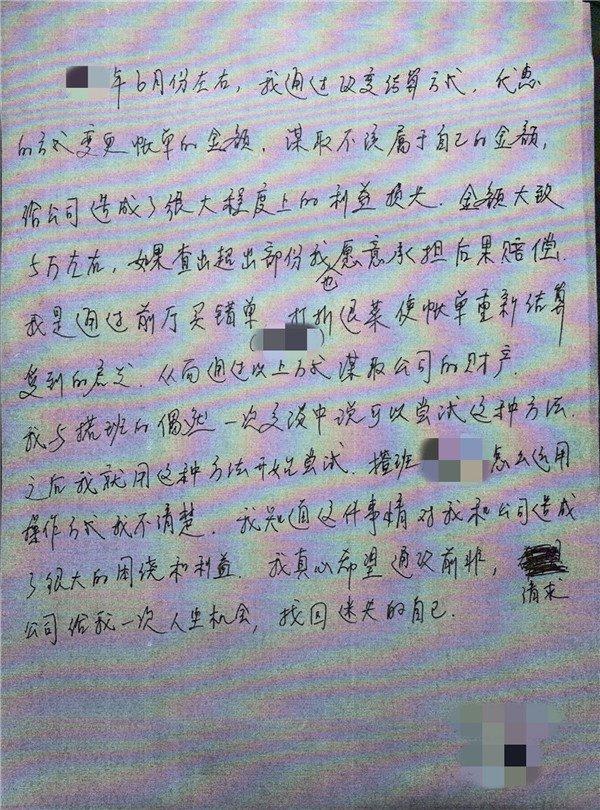 年6月份左右，我通过改变结算方式、优惠
的方式变更帐单的金额，谋取不该属于自己的金额，
给公司造成了很大程度上的利益损失，金额大致
5万左右，如果查出超出部份我也愿意承担后果赔偿.
我是通过前厅买错单（ ）打折退菜使帐单重新结算
受到的启发，从而通过以上方式谋取公司的财产.
我与搭班的偶然一次交谈中说可以尝试这种方法.
之后我就用这种方法开始尝试. 搭班 怎么运用
操作方式我不清楚. 我知道这件事情对我和公司造成
了很大的困绕和利益. 我真心希望痛改前非， 请求
公司给我一次人生机会，找回迷失的自己.